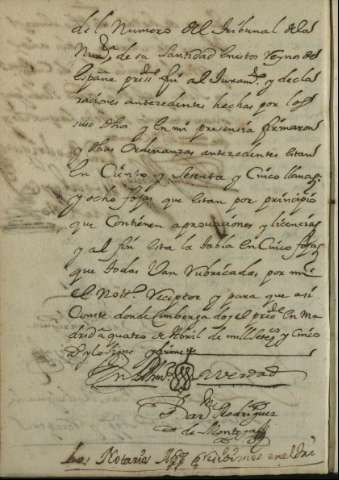 de la Numero del Tribunal de la
Nun.ª de su Santidad en estos Reynos de
España pres.te fui al Juram.to y decla
raciones antecedentes hechas por los
suso dhos y en mi presencia firmaron
y las Ordenanzas antecedentes estan
En Ciento y Setenta y Cinco llenas
y ocho fojas que estan por principio
que Contienen aprovaciones y licencias
y al fin esta la tabla en Cinco fojas
que todas Van Rubricadas por mi
el Nott.º Receptor y para que asi
Conste donde Combenga doy el pres.te en Ma
drid a quatro de Abril de mill y setec.os y Cinco
y lo signo y firme
En testim.º de Verdad
Rodriguez
de
los Notarios App.cos